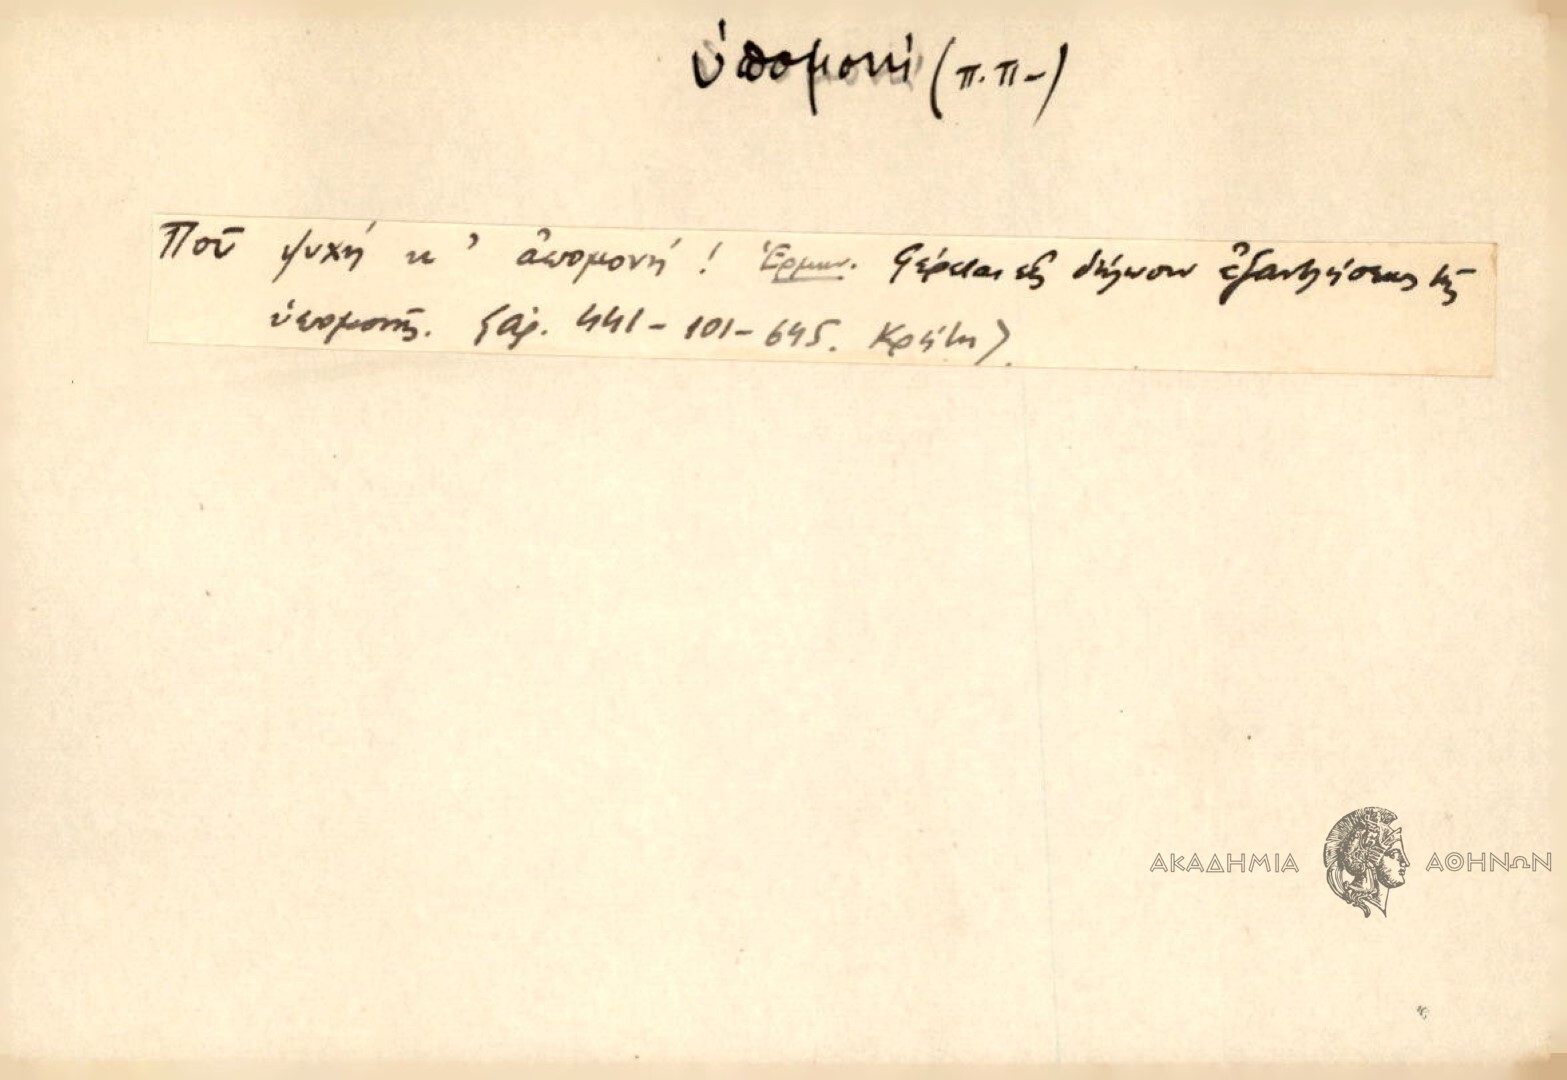 ὑπομονή (π.π-)
Ποῦ ψυχή κ' ἀπομονή! Ἑρμην. Φέρεται εἰς δήλωσιν ἐξαντλήσεως τῆς
ὑπομονῆς. (ἀρ. 441-101-645. Κρήτη)
ΑΚΑΔΗΜΙΑ ΑΘΗΝΩΝ